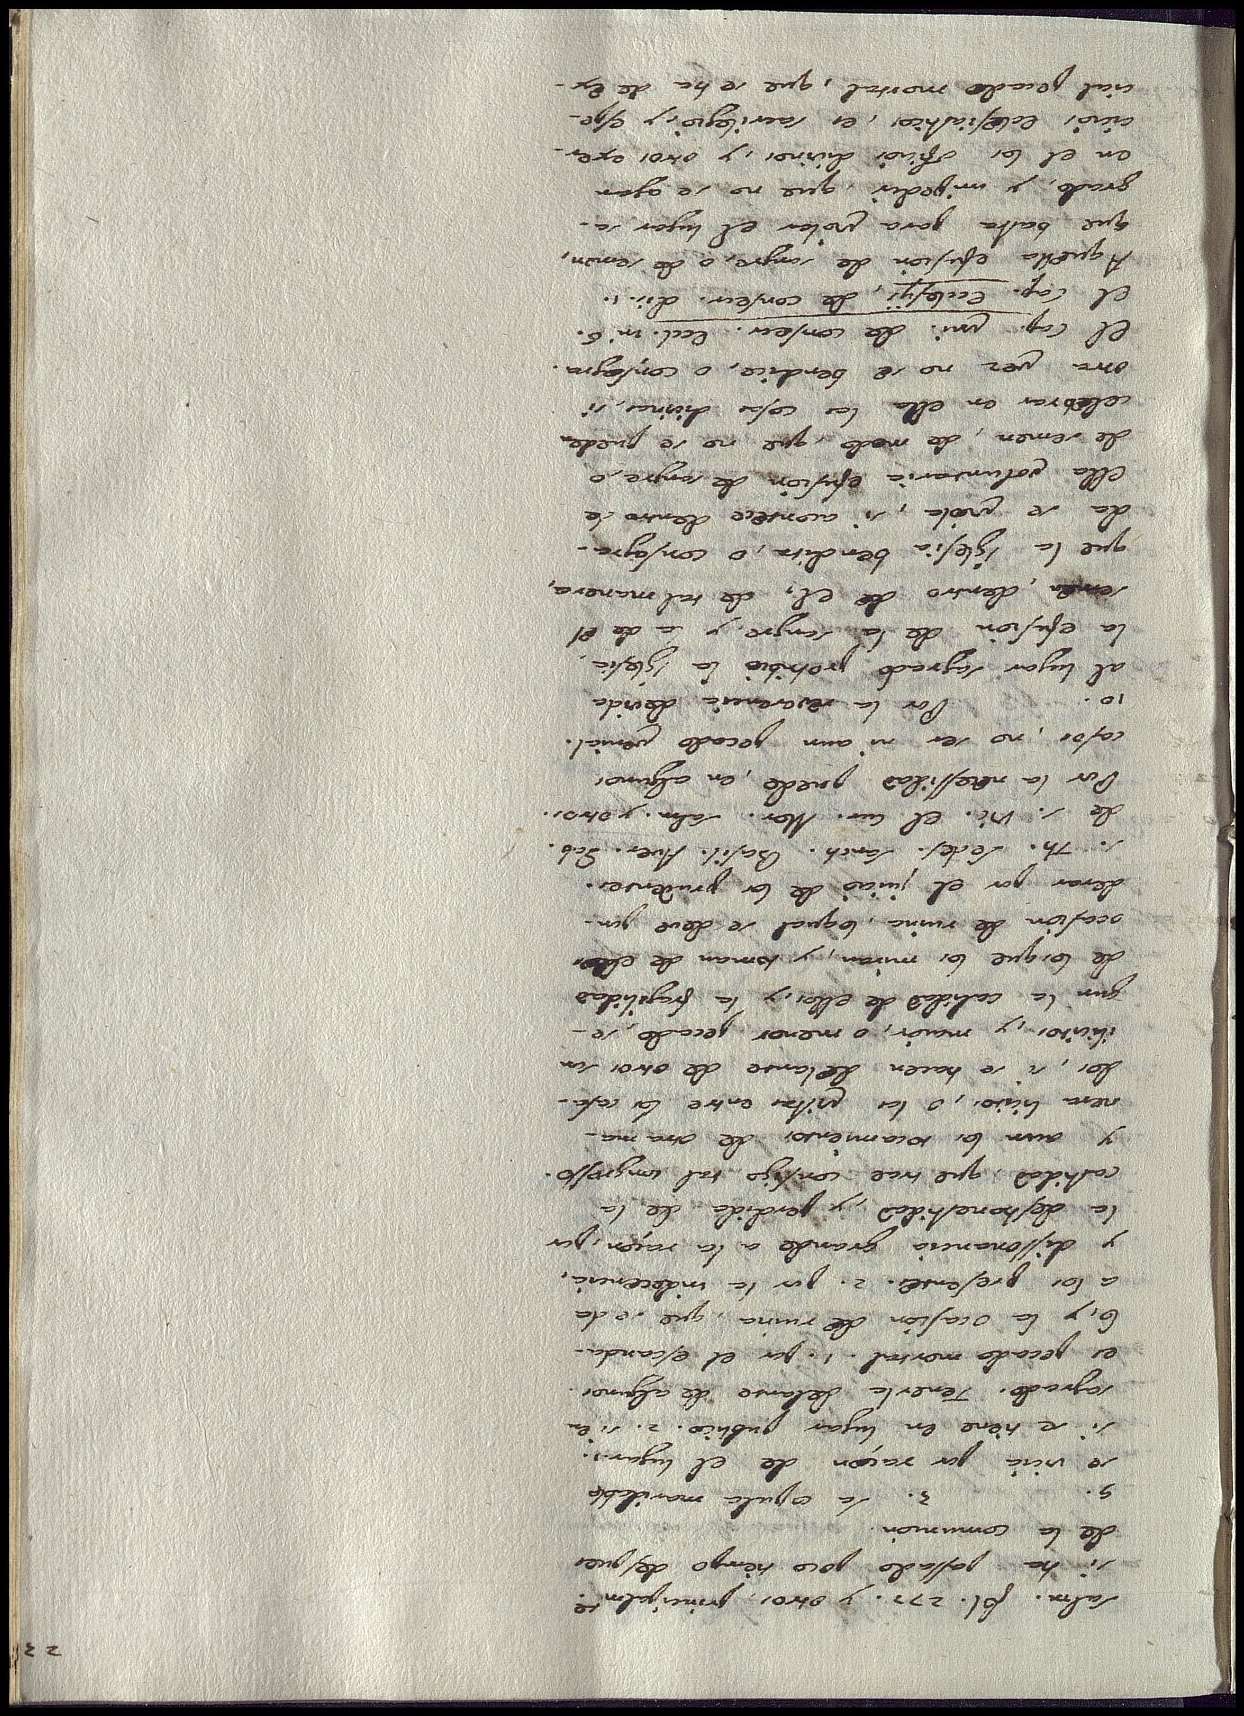 23
Salm. fol. 277. y otros, principalmte.
si ha passado poco tiempo despues
de la comunion.
9. 3. la copula maridable
se vicia por raçon de el lugar. 1.
si se tiene en lugar publico. 2. si en
sagrado. Tenerla delante de algunos
es pecado mortal. 1. por el escanda-
lo, y la ocasion de ruina, que se da
a los presentes. 2. por la indecencia,
y dissonancia grande a la raçon, por
la deshonestidad, y perdida de la
castidad, que trae consigo tal congresso.
y aun los tocamientos de otra ma-
nera licitos, o los entre los casa-
dos, si se hacen delante de otros son
ilicitos, y maior, o menor pecado, se-
gun la calidad de ellos, y la fragilidad
de los que los miran, y toman de ellos
ocasion de ruina, loqual se deve pon-
derar por el juicio de los prudentes.
S. Th. Ledes. Sanch. Basil. Aver. Gab.
de S. Vi. el cur. Mor. Salm. y otros.
Por la necessidad puede, en algunos
casos, no ser ni aun pecado venial.
10. Por la reverencia devida
al lugar sagrado prohibio la Iglesia,
la efusion de la sangre, y la de el
semen, dentro de el, de tal manera,
que la Iglesia bendita, o consagra-
da se viola, si acontece dentro de
ella voluntaria efusion de sangre, o
de semen, de modo que no se pueden
celebrar en ella las cosas divinas, si
otra vez no se bendice, o consagra.
el cap. uni. de consecr. Eccl. in 6.
el cap. Ecclesijs, de consecr. dis. 1.
Aquella efusion de sangre, o de semen,
que basta para violar el lugar sa-
grado, y impedir, que no se agan
en el los oficios divinos, y otros exer-
cicios eclesiasticos, es sacrilegio, y espe-
cial pecado mortal, que se ha de ex-